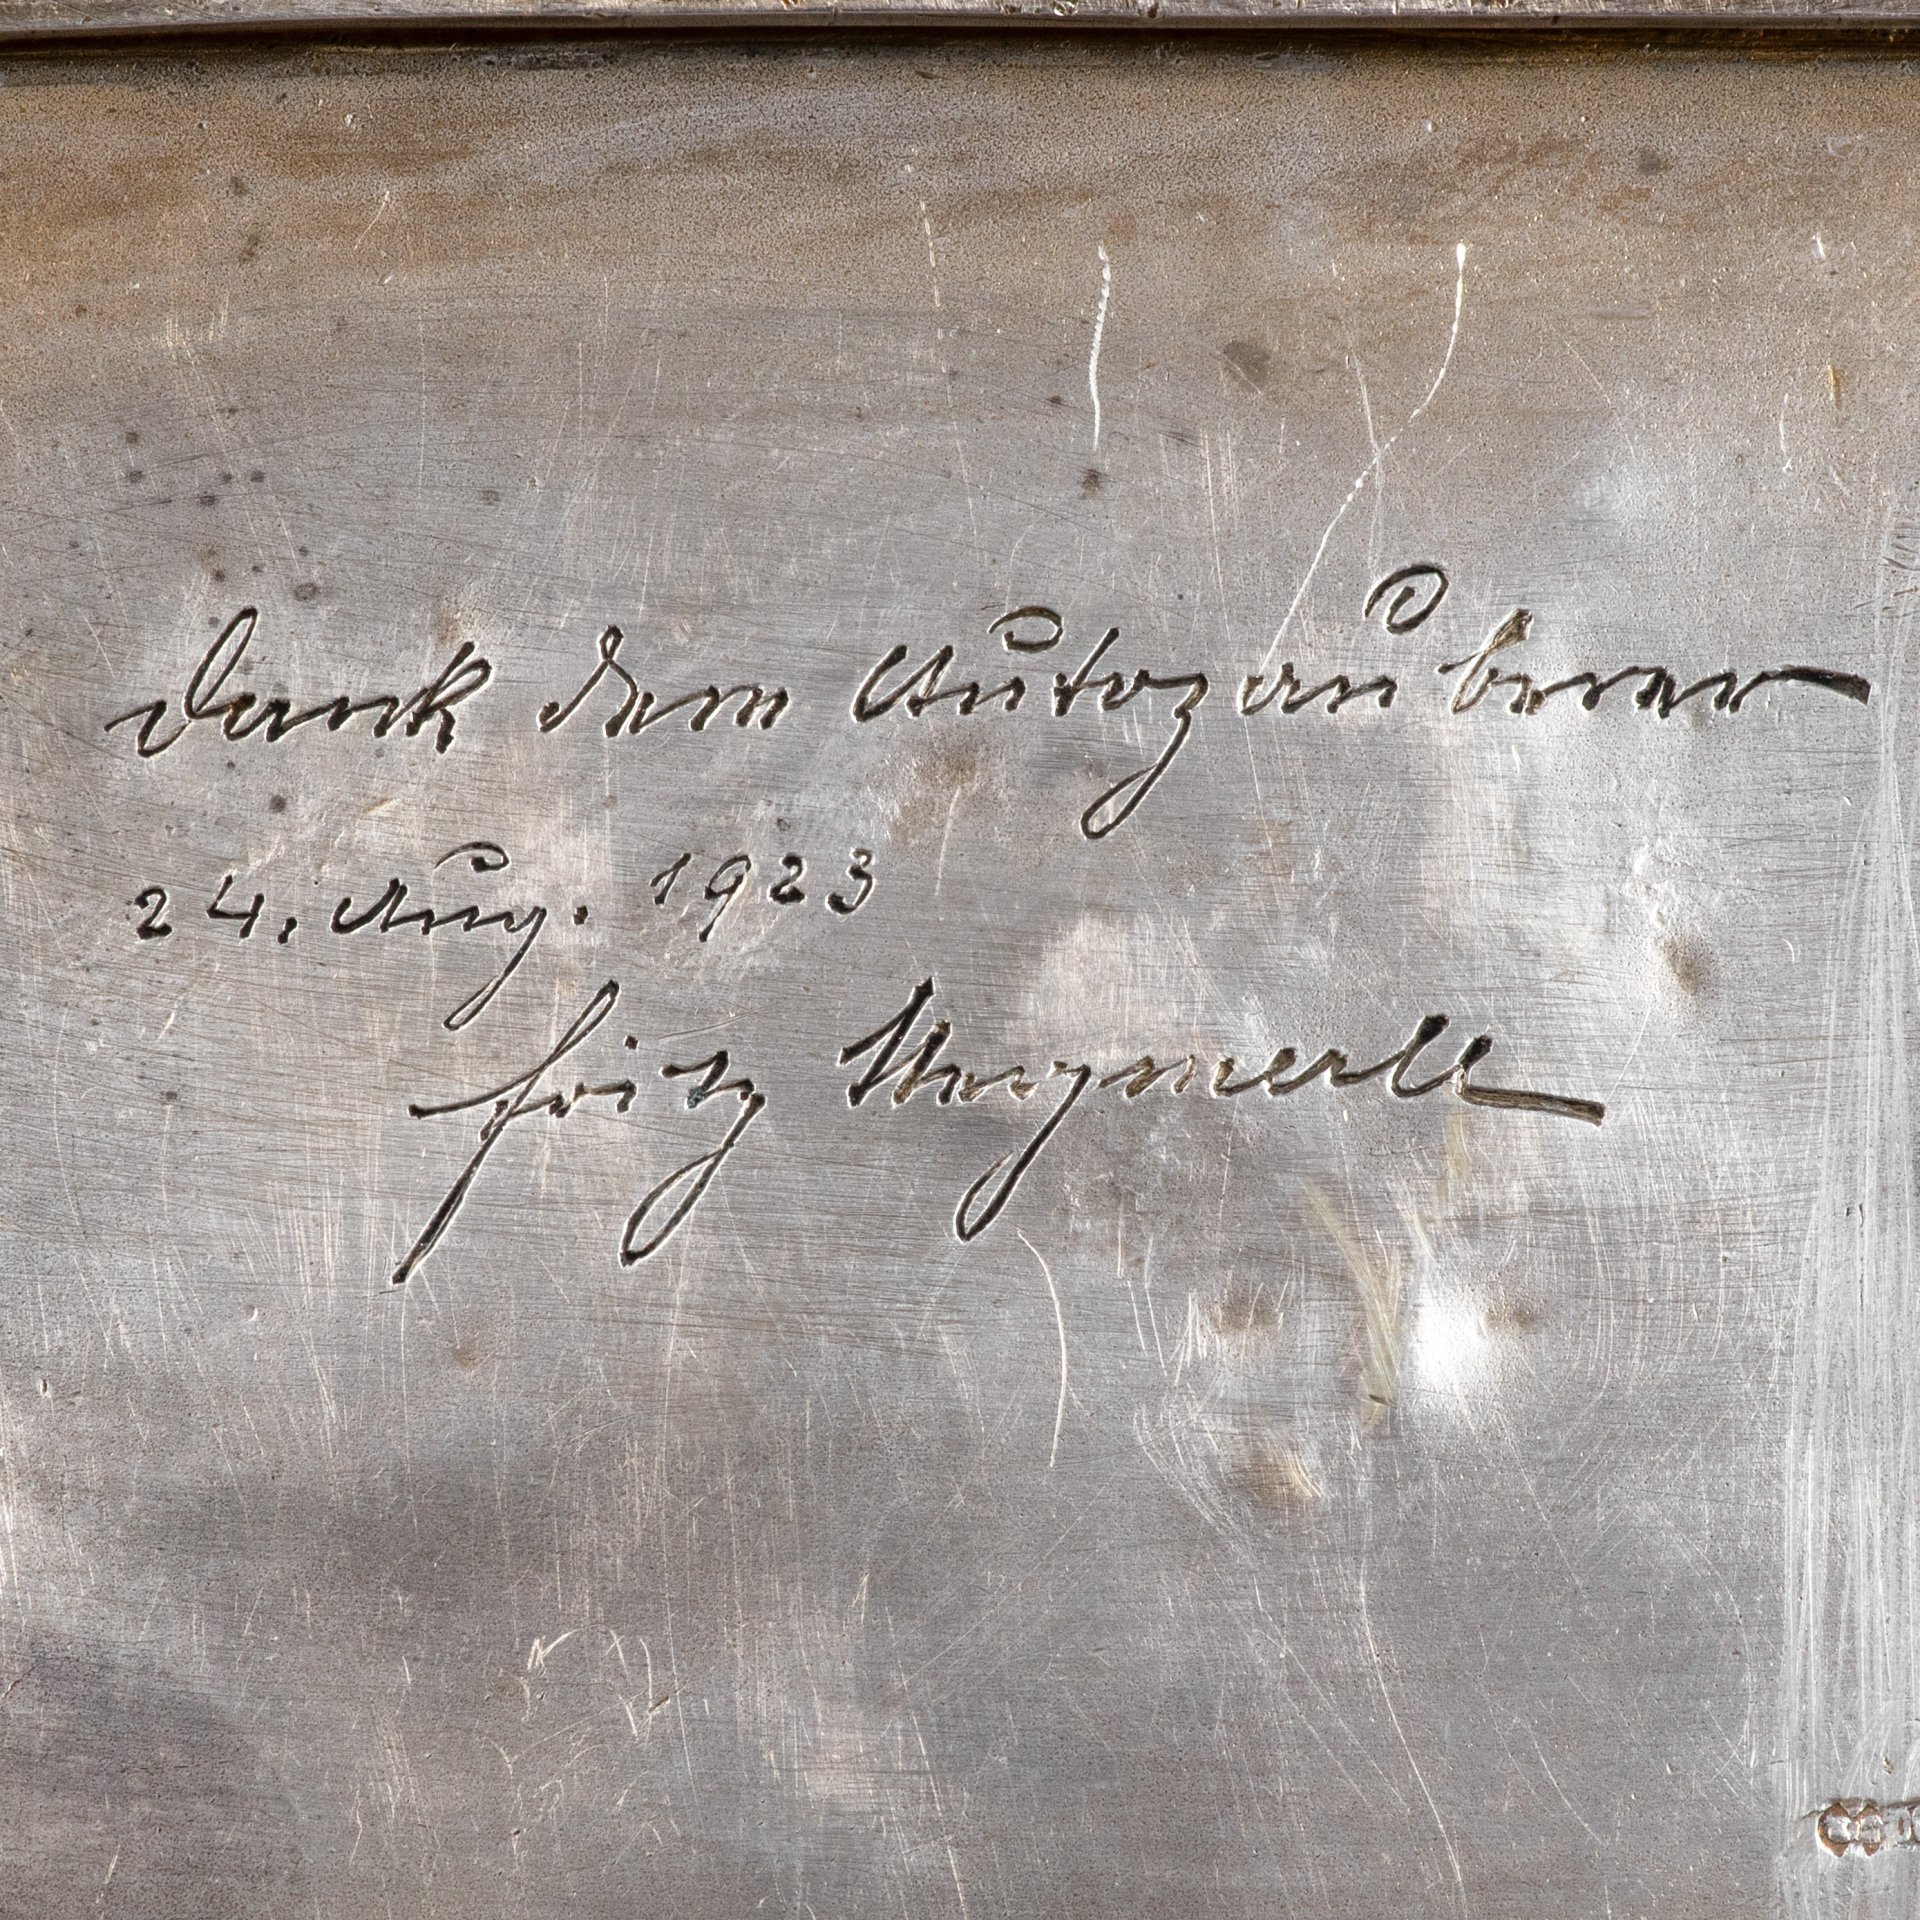 Dank dem Autozauberer
24. Aug. 1923
Fritz Haymerle